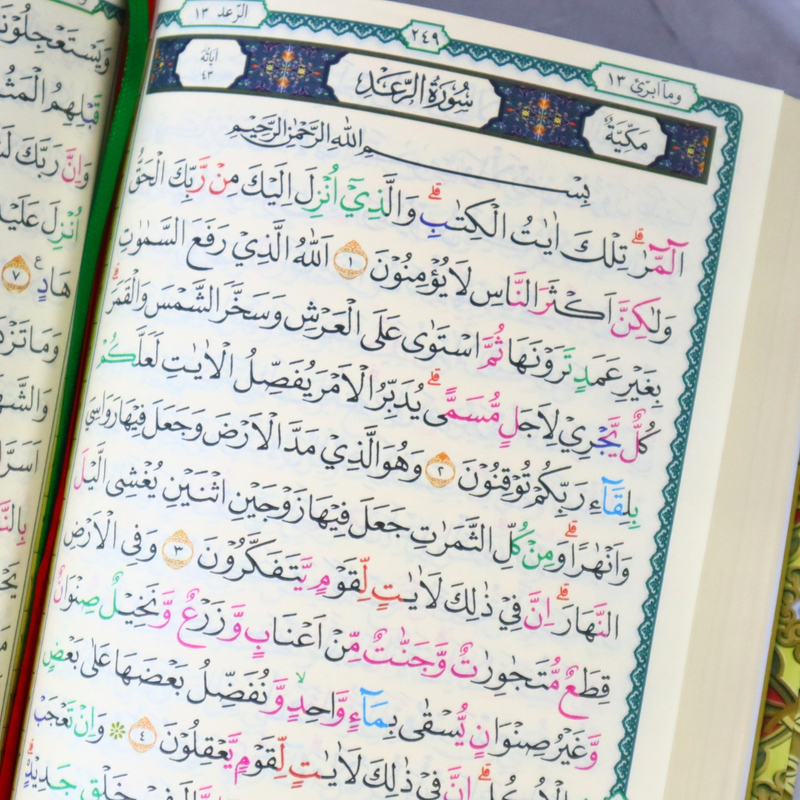 وما ابرئ ١٣
٢٤٩
الرعد ١٣
مَكِّيَّةٌ
سُوْرَةُ الرَّعْدِ
اٰيَاتُهَا ٤٣
بِسْمِ اللّٰهِ الرَّحْمٰنِ الرَّحِيْمِ
الۤمّۤرٰ ۗ تِلْكَ اٰيٰتُ الْكِتٰبِ ۗ وَالَّذِيْٓ اُنْزِلَ اِلَيْكَ مِنْ رَّبِّكَ الْحَقُّ
وَلٰكِنَّ اَكْثَرَ النَّاسِ لَا يُؤْمِنُوْنَ ١ اَللّٰهُ الَّذِيْ رَفَعَ السَّمٰوٰتِ
بِغَيْرِ عَمَدٍ تَرَوْنَهَا ثُمَّ اسْتَوٰى عَلَى الْعَرْشِ وَسَخَّرَ الشَّمْسَ وَالْقَمَرَ ۗ
كُلٌّ يَّجْرِيْ لِاَجَلٍ مُّسَمًّى ۗ يُدَبِّرُ الْاَمْرَ يُفَصِّلُ الْاٰيٰتِ لَعَلَّكُمْ
بِلِقَاۤءِ رَبِّكُمْ تُوْقِنُوْنَ ٢ وَهُوَ الَّذِيْ مَدَّ الْاَرْضَ وَجَعَلَ فِيْهَا رَوَاسِيَ
وَاَنْهٰرًا ۗ وَمِنْ كُلِّ الثَّمَرٰتِ جَعَلَ فِيْهَا زَوْجَيْنِ اثْنَيْنِ يُغْشِى الَّيْلَ
النَّهَارَ ۗ اِنَّ فِيْ ذٰلِكَ لَاٰيٰتٍ لِّقَوْمٍ يَّتَفَكَّرُوْنَ ٣ وَفِى الْاَرْضِ
قِطَعٌ مُّتَجٰوِرٰتٌ وَّجَنّٰتٌ مِّنْ اَعْنَابٍ وَّزَرْعٌ وَّنَخِيْلٌ صِنْوَانٌ
وَّغَيْرُ صِنْوَانٍ يُّسْقٰى بِمَاۤءٍ وَّاحِدٍ ۙ وَّنُفَضِّلُ بَعْضَهَا عَلٰى بَعْضٍ
فِى الْاُكُلِ ۗ اِنَّ فِيْ ذٰلِكَ لَاٰيٰتٍ لِّقَوْمٍ يَّعْقِلُوْنَ ٤ ۞ وَاِنْ تَعْجَبْ
وَيَسْتَعْجِلُوْنَ
قَبْلِهِمُ الْمَثُ
وَاِنَّ رَبَّكَ
اُنْزِلَ عَلَيْ
هَادٍ ࣖ ٧
وَمَا تَزْدَ